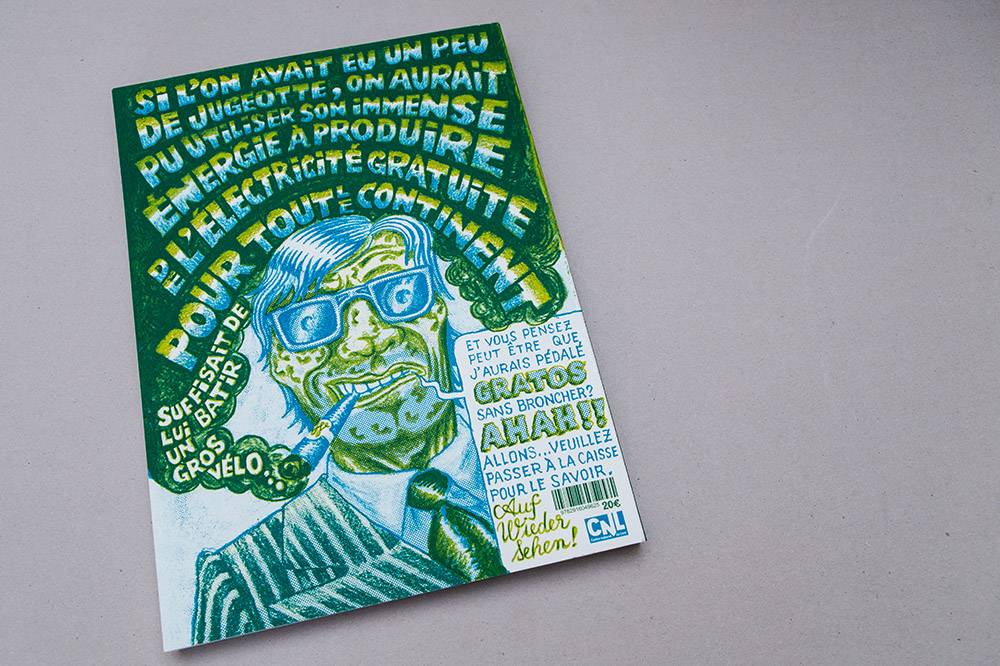 SI L'ON AVAIT EU UN PEU
DE JUGEOTTE, ON AURAIT
PU UTILISER SON IMMENSE
ÉNERGIE À PRODUIRE
DE L'ÉLECTRICITÉ GRATUITE
POUR TOUT LE CONTINENT
SUFFISAIT DE
LUI BATIR
UN GROS
VÉLO...
ET VOUS PENSEZ
PEUT ÊTRE QUE
J'AURAIS PÉDALÉ
GRATOS
SANS BRONCHER?
AHAH!!
ALLONS... VEUILLEZ
PASSER À LA CAISSE
POUR LE SAVOIR.
Auf
Wieder
Sehen!
9782916049625
20€
CNL